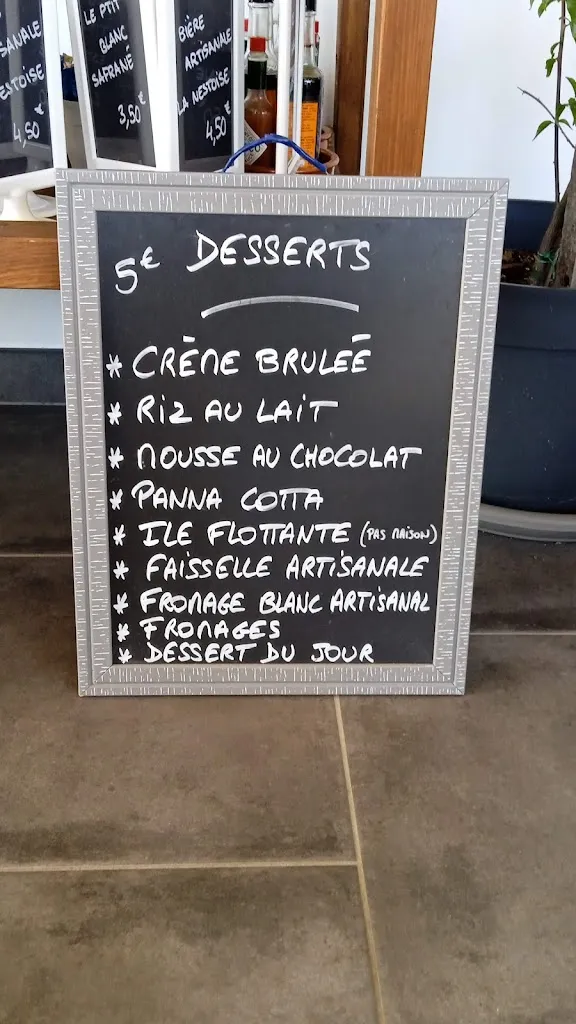 SANALE
ESTOISE
4,50
LE PTIT
BLANC
SAFRANÉ
3,50€
BIÈRE
ARTISANALE
LA NESTOISE
4,50€
5€ DESSERTS
* CRÈME BRULEÉ
* RIZ AU LAIT
* MOUSSE AU CHOCOLAT
* PANNA COTTA
* ILE FLOTTANTE (PAS MAISON)
* FAISSELLE ARTISANALE
* FROMAGE BLANC ARTISANAL
* FROMAGES
* DESSERT DU JOUR